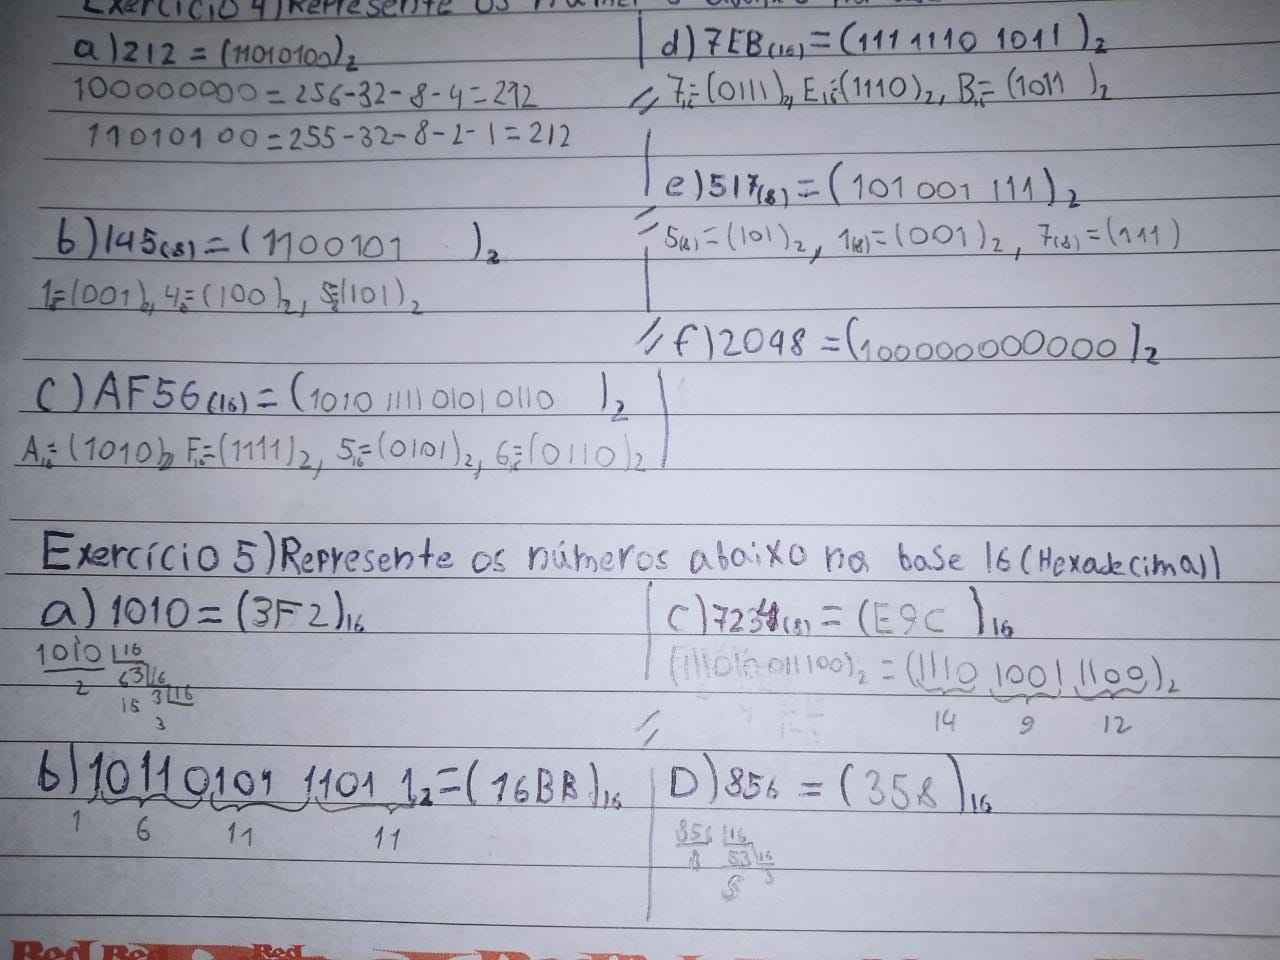 Exercício 4) Represente os
a) 212 = (11010100)₂
100000000 = 256-32-8-4 = 212
11010100 = 255-32-8-2-1 = 212
b) 145₍₈₎ = (1100101 )₂
1₈=(001)₂, 4₈=(100)₂, 5₈=(101)₂
c) AF56₍₁₆₎ = (1010 1111 0101 0110 )₂
A₁₆=(1010)₂ F₁₆=(1111)₂, 5₁₆=(0101)₂, 6₁₆=(0110)₂
d) 7EB₍₁₆₎ = (111 1110 1011 )₂
7₁₆=(0111)₂, E₁₆=(1110)₂, B₁₆=(1011 )₂
e) 517₍₈₎ = (101 001 111)₂
5₍₈₎=(101)₂, 1₍₈₎=(001)₂, 7₍₈₎=(111)
f) 2048 = (100000000000)₂
Exercício 5) Represente os números abaixo na base 16 (Hexadecimal)
a) 1010 = (3F2)₁₆
1010 16
2 63 16
15 3 16
3
b) 10110101 1101 1₂ = (16BB)₁₆
1 6 11 11
c) 7234₍₈₎ = (E9C )₁₆
(111010011100)₂ = (1110 1001 1100)₂
14 9 12
D) 856 = (358)₁₆
856 16
8 53 16
5 3
Red Re Red